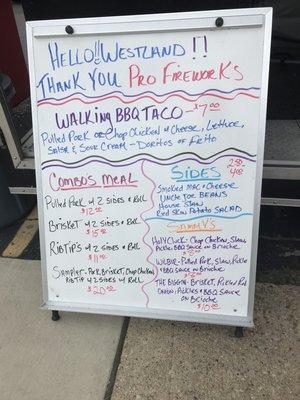 HELLO!! WESTLAND !!
THANK YOU PRO FIREWORKS
WALKING BBQ TACO - $7.00
Pulled Pork or Chop Chicken w/ Cheese, Lettuce,
Salsa & Sour Cream - Doritos or Frito
COMBOS MEAL
Pulled Pork w/ 2 Sides & Roll
$12.00
Brisket w/ 2 Sides & Roll
$15.00
Rib Tips w/ 2 Sides & Roll
$11.00
Sampler - Pork, Brisket, Chop Chicken
Rib Tip w/ 2 Sides w/ Roll
$20.00
SIDES
Smoked Mac & Cheese
Uncle Joe BEANS
House Slaw
Red Skin Potato SALAD
SAMMY'S
Holy Cluck - Chop Chicken, Slaw
Pickle BBQ Sauce on Brioche
Wilbur - Pulled Pork, Slaw, Pickle
& BBQ Sauce on Brioche
THE BIGGUN - Brisket, Pickled Red
Onion, Pickles & BBQ Sauce
on Brioche
$10